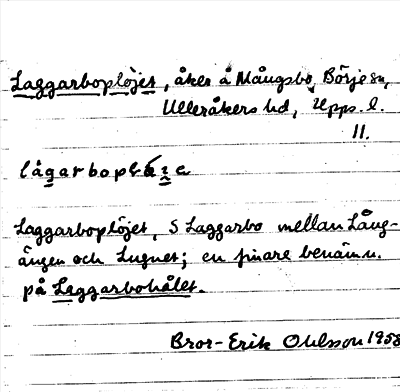 Laggarboplöjet, åker å Mångsbo, Börje sn,
Ulleråkers hd, Upps. l.
11.
Laggarboplöjet, S Laggarbo mellan Lång-
ängen och Lugnet; en finare benämn.
på Laggarbohålet.
Bror-Erik Ohlsson 1958